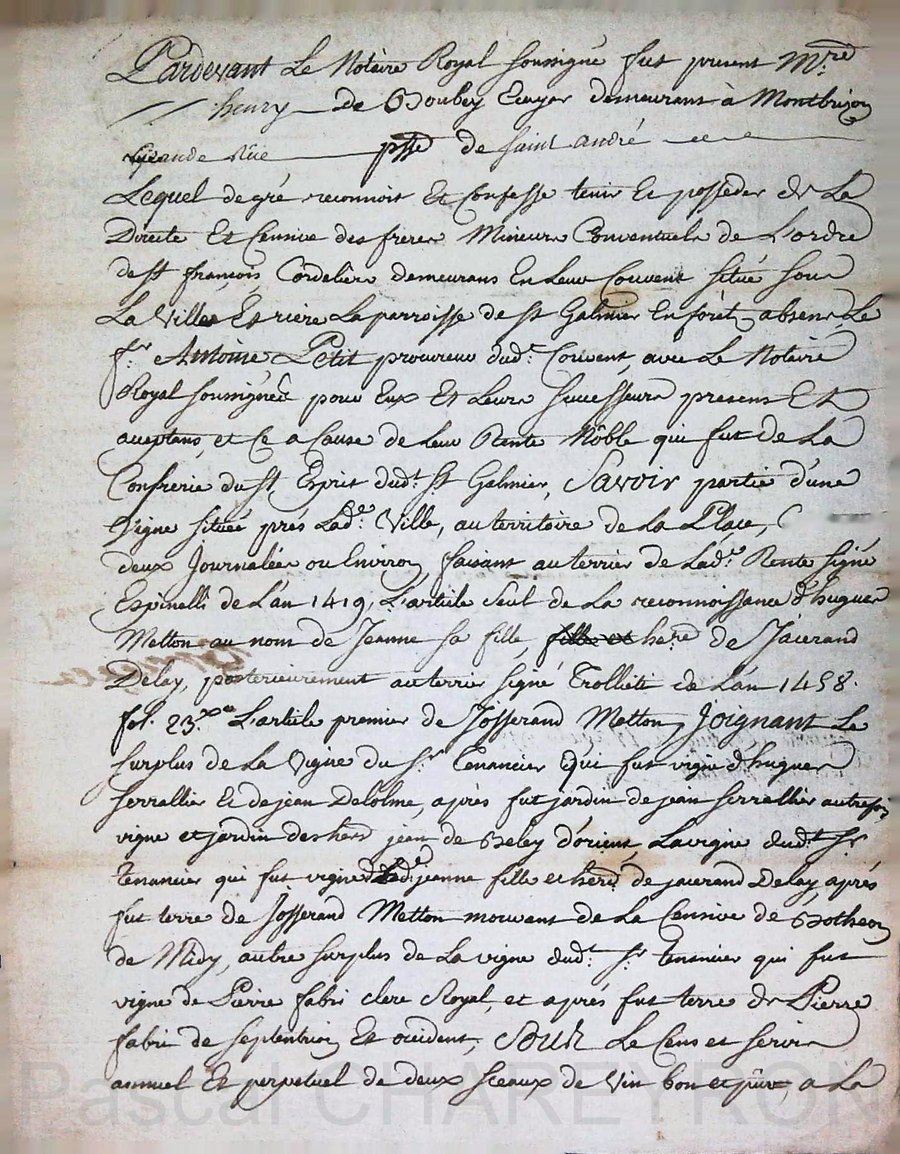 Pardevant Le Notaire Royal soussigné fut present Mre
henry de Boubey Ecuyer demeurant à Montbrison
grande Rüe psse de saint andré
Lequel de gré reconnoit Et Confesse tenir Et posseder de La
Directe Et Censive des freres Mineurs Conventuels de L'ordre
de st françois, Cordeliers demeurans En Leur Couvent situé sous
La Ville Et riere La parroisse de st Galmier En forêt, absens, Le
fr. Antoine Petit procureur dudt Couvent, avec Le Notaire
Royal soussignés pour Eux Et Leurs successeurs presens Et
aceptans, et Ce a Cause de Leur Rente Nôble qui fut de La
Confrerie du st Esprit dudt st Galmier, Savoir partie d'une
Vigne située prés Lade Ville, au territoire de La Place,
deux Journalées ou Environ, faisant au terrier de Lade Rente signé
Espinelli de L'an 1419, L'article seul de La reconnoissance d'hugues
Metton au nom de Jeanne sa fille, fille et here de Jaurand
Delay, posterieurement au terrier signé Trollieti de L'an 1458.
fol. 23. L'article premier de Josserand Metton, Joignant Le
surplus de La Vigne du sr Tenancier Qui fut vigne d'hugues
serrallier Et de jean Delolme, après fut jardin de jean serrallier autrefois
vigne et jardin des hers jean de Beley d'orient, La vigne dudt sr
tenancier qui fut vigne de Lade jeanne fille et here de jaurand Delay, après
fut terre de Josserand Metton mouvent de La Censive de Botheon
de Midy, autre surplus de La vigne dudt sr tenancier qui fut
vigne de Pierre fabri clerc Royal, et après fut terre de Pierre
fabri de septentrion Et occident, Souz Le Cens et servis
annuel Et perpetuel de deux sceaux de Vin bon et pûr, a La
Pascal CHAREYRON